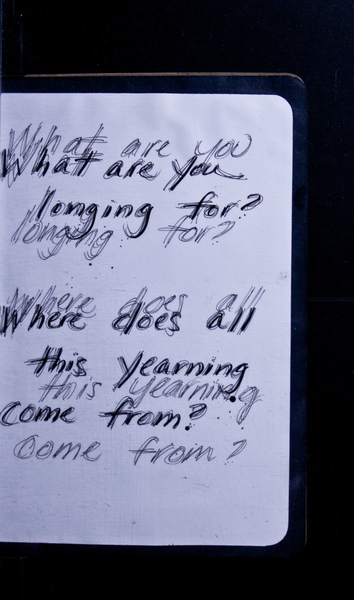 What are you
What are you
longing for?
longing for?
Where does all
Where does all
this yearning
this yearning
come from?
Come from?